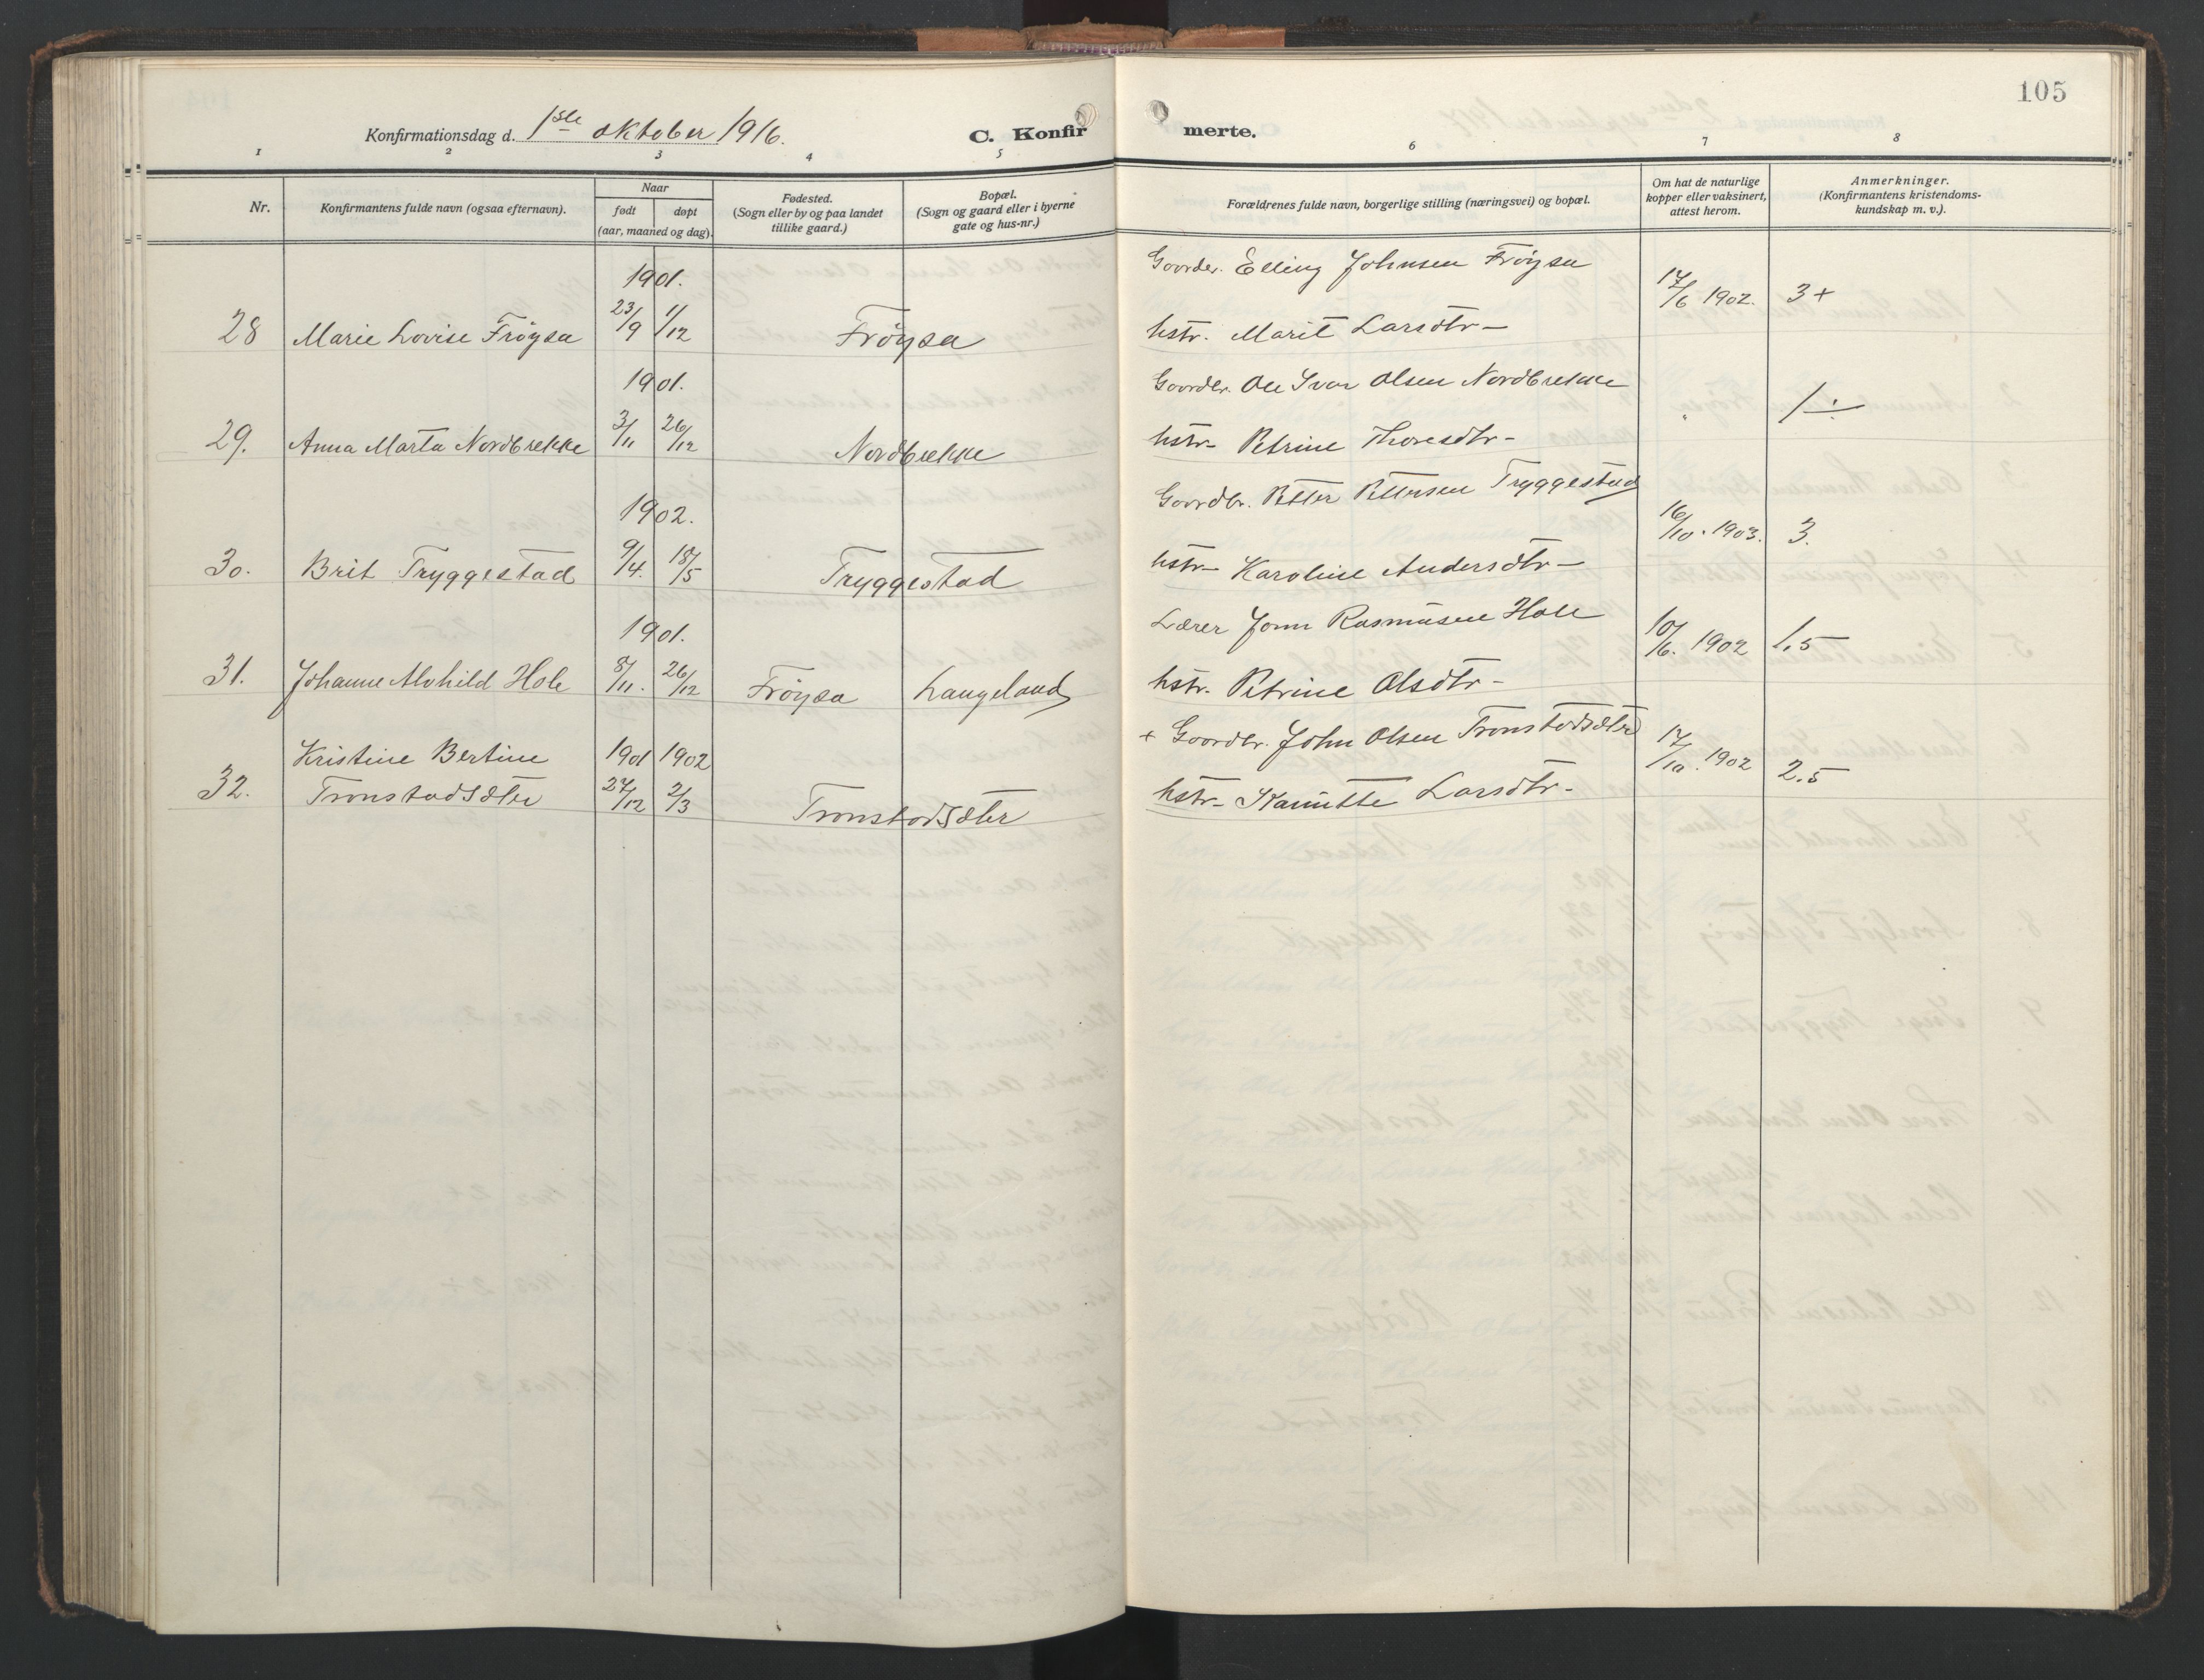 105
Konfirmationsdag d. 1ste oktober 1916.
C. Konfirmerte.
1 2 3 4 5 6 7 8
Nr.
Konfirmantens fulde navn (ogsaa efternavn).
Naar
født døpt
(aar, maaned og dag).
Fødested.
(Sogn eller by og paa landet
tillike gaard.)
Bopæl.
(Sogn og gaard eller i byerne
gate og hus-nr.)
Forældrenes fulde navn, borgerlige stilling (næringsvei) og bopæl.
Om hat de naturlige
kopper eller vaksinert,
attest herom.
Anmerkninger.
(Konfirmantens kristendoms-
kundskap m. v.).
1901. Goordbr. Elling Johnsen Frøysa
28 Marie Lovise Frøysa 23/9 1/12 Frøysa hstr. Marit Larsdtr- 17/6 1902. 3+
1901. Goordbr. Ole Ivar Olsen Nordbrekke
29. Anna Marta Nordbrekke 3/11 26/12 Nordbrekke hstr- Petrine Thoresdtr- " 1÷
1902. Goordbr. Petter Pettersen Tryggestad
30. Brit Tryggestad 9/4. 18/5 Tryggestad hstr- Karoline Andersdtr- 16/10. 1903. 3.
1901. Lærer Jonn Rasmusen Hole
31. Johanne Alvhild Hole 8/11. 26/12 Frøysa Langeland hstr. Petrine Olsdtr- 10/6. 1902 1.5
Kristine Bertine 1901 1902 + Goordbr. John Olsen Tronstadsæter
32. Tronstadsæter 27/12 2/3 Tronstadsæter hstr- Larsdtr- 17/10. 1902 2.5